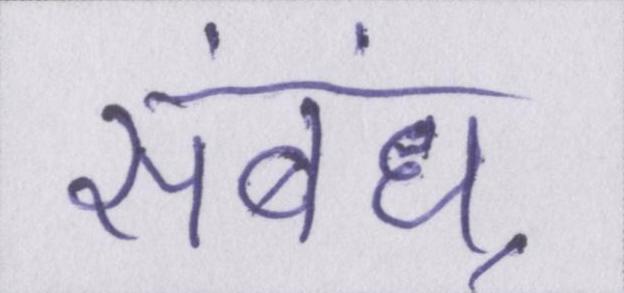 संबंध,